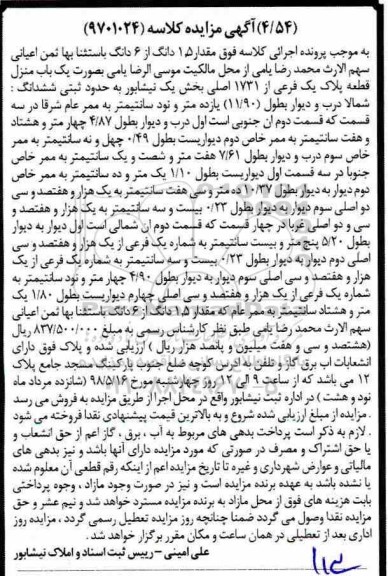 (۴/۵۴) آگهی مزایده کلاسه (۹۷۰۱۰۲۴)
به موجب پرونده اجرائی کلاسه فوق مقدار ۱,۵ دانگ از ۶ دانگ باستثنا بها ثمن اعیانی
سهم الارث محمد رضا یامی از محل مالکیت موسی الرضا یامی بصورت یک باب منزل
قطعه پلاک یک فرعی از ۱۷۳۱ اصلی بخش یک نیشابور به حدود ثبتی ششدانگ :
شمالا درب و دیوار بطول (۱۱/۹۰) یازده متر و نود سانتیمتر به ممر عام شرقا در سه
قسمت که قسمت دوم ان جنوبی است اول درب و دیوار بطول ۴/۸۷ چهار متر و هشتاد
و هفت سانتیمتر به ممر خاص دوم دیواریست بطول ۰/۴۹ چهل و نه سانتیمتر به ممر
خاص سوم درب و دیوار بطول ۷/۶۱ هفت متر و شصت و یک سانتیمتر به ممر خاص
جنوبا در سه قسمت اول دیواریست بطول ۱/۱۰ یک متر و ده سانتیمتر به ممر خاص
دوم دیوار به دیوار بطول ۱۰/۳۷ ده متر و سی هفت سانتیمتر به یک هزار و هفتصد و سی
دو اصلی سوم دیوار به دیوار بطول ۰/۲۳ بیست و سه سانتیمتر به یک هزار و هفتصد و
سی و دو اصلی غربا در چهار قسمت که قسمت دوم ان شمالی است اول دیوار به دیوار
بطول ۵/۲۰ پنج متر و بیست سانتیمتر به شماره یک فرعی از یک هزار و هفتصد و سی
اصلی دوم دیوار به دیوار بطول ۰/۲۳ بیست و سه سانتیمتر به شماره یک فرعی از یک
هزار و هفتصد و سی اصلی سوم دیوار به دیوار بطول ۴/۹۰ چهار متر و نود سانتیمتر به
شماره یک فرعی از یک هزار و هفتصد و سی اصلی چهارم دیواریست بطول ۱/۸۰ یک
متر و هشتاد سانتیمتر به ممر عام که مقدار ۱,۵ دانگ از ۶ دانگ باستثنا بها ثمن اعیانی
سهم الارث محمد رضا یامی طبق نظر کارشناس رسمی به مبلغ ۸۳۷/۵۰۰/۰۰۰ ریال
(هشتصد و سی و هفت میلیون و پانصد هزار ریال ) ارزیابی شده و پلاک فوق دارای
انشعابات اب برق گاز و تلفن به ادرس کوچه ضلع جنوب پارکینگ مسجد جامع پلاک
۱۲ می باشد که از ساعت ۹ الی ۱۲ روز چهارشنبه مورخ ۹۸/۵/۱۶ (شانزده مرداد ماه
نود و هشت ) در اداره ثبت نیشابور واقع در محل اجرا از طریق مزایده به فروش می رسد
. مزایده از مبلغ ارزیابی شده شروع و به بالاترین قیمت پیشنهادی نقدا فروخته می شود
. لازم به ذکر است پرداخت بدهی های مربوط به آب ، برق ، گاز اعم از حق انشعاب و
یا حق اشتراک و مصرف در صورتی که مورد مزایده دارای آنها باشد و نیز بدهی های
مالیاتی و عوارض شهرداری و غیره تا تاریخ مزایده اعم از اینکه رقم قطعی آن معلوم شده
یا نشده باشد به عهده برنده مزایده است و نیز در صورت وجود مازاد ، وجوه پرداختی
بابت هزینه های فوق از محل مازاد به برنده مزایده مسترد خواهد شد و نیم عشر و حق
مزایده نقدا وصول می گردد ضمنا چنانچه روز مزایده تعطیل رسمی گردد ، مزایده روز
اداری بعد از تعطیلی در همان ساعت و مکان مقرر برگزار خواهد شد .
علی امینی – رییس ثبت اسناد و املاک نیشابور